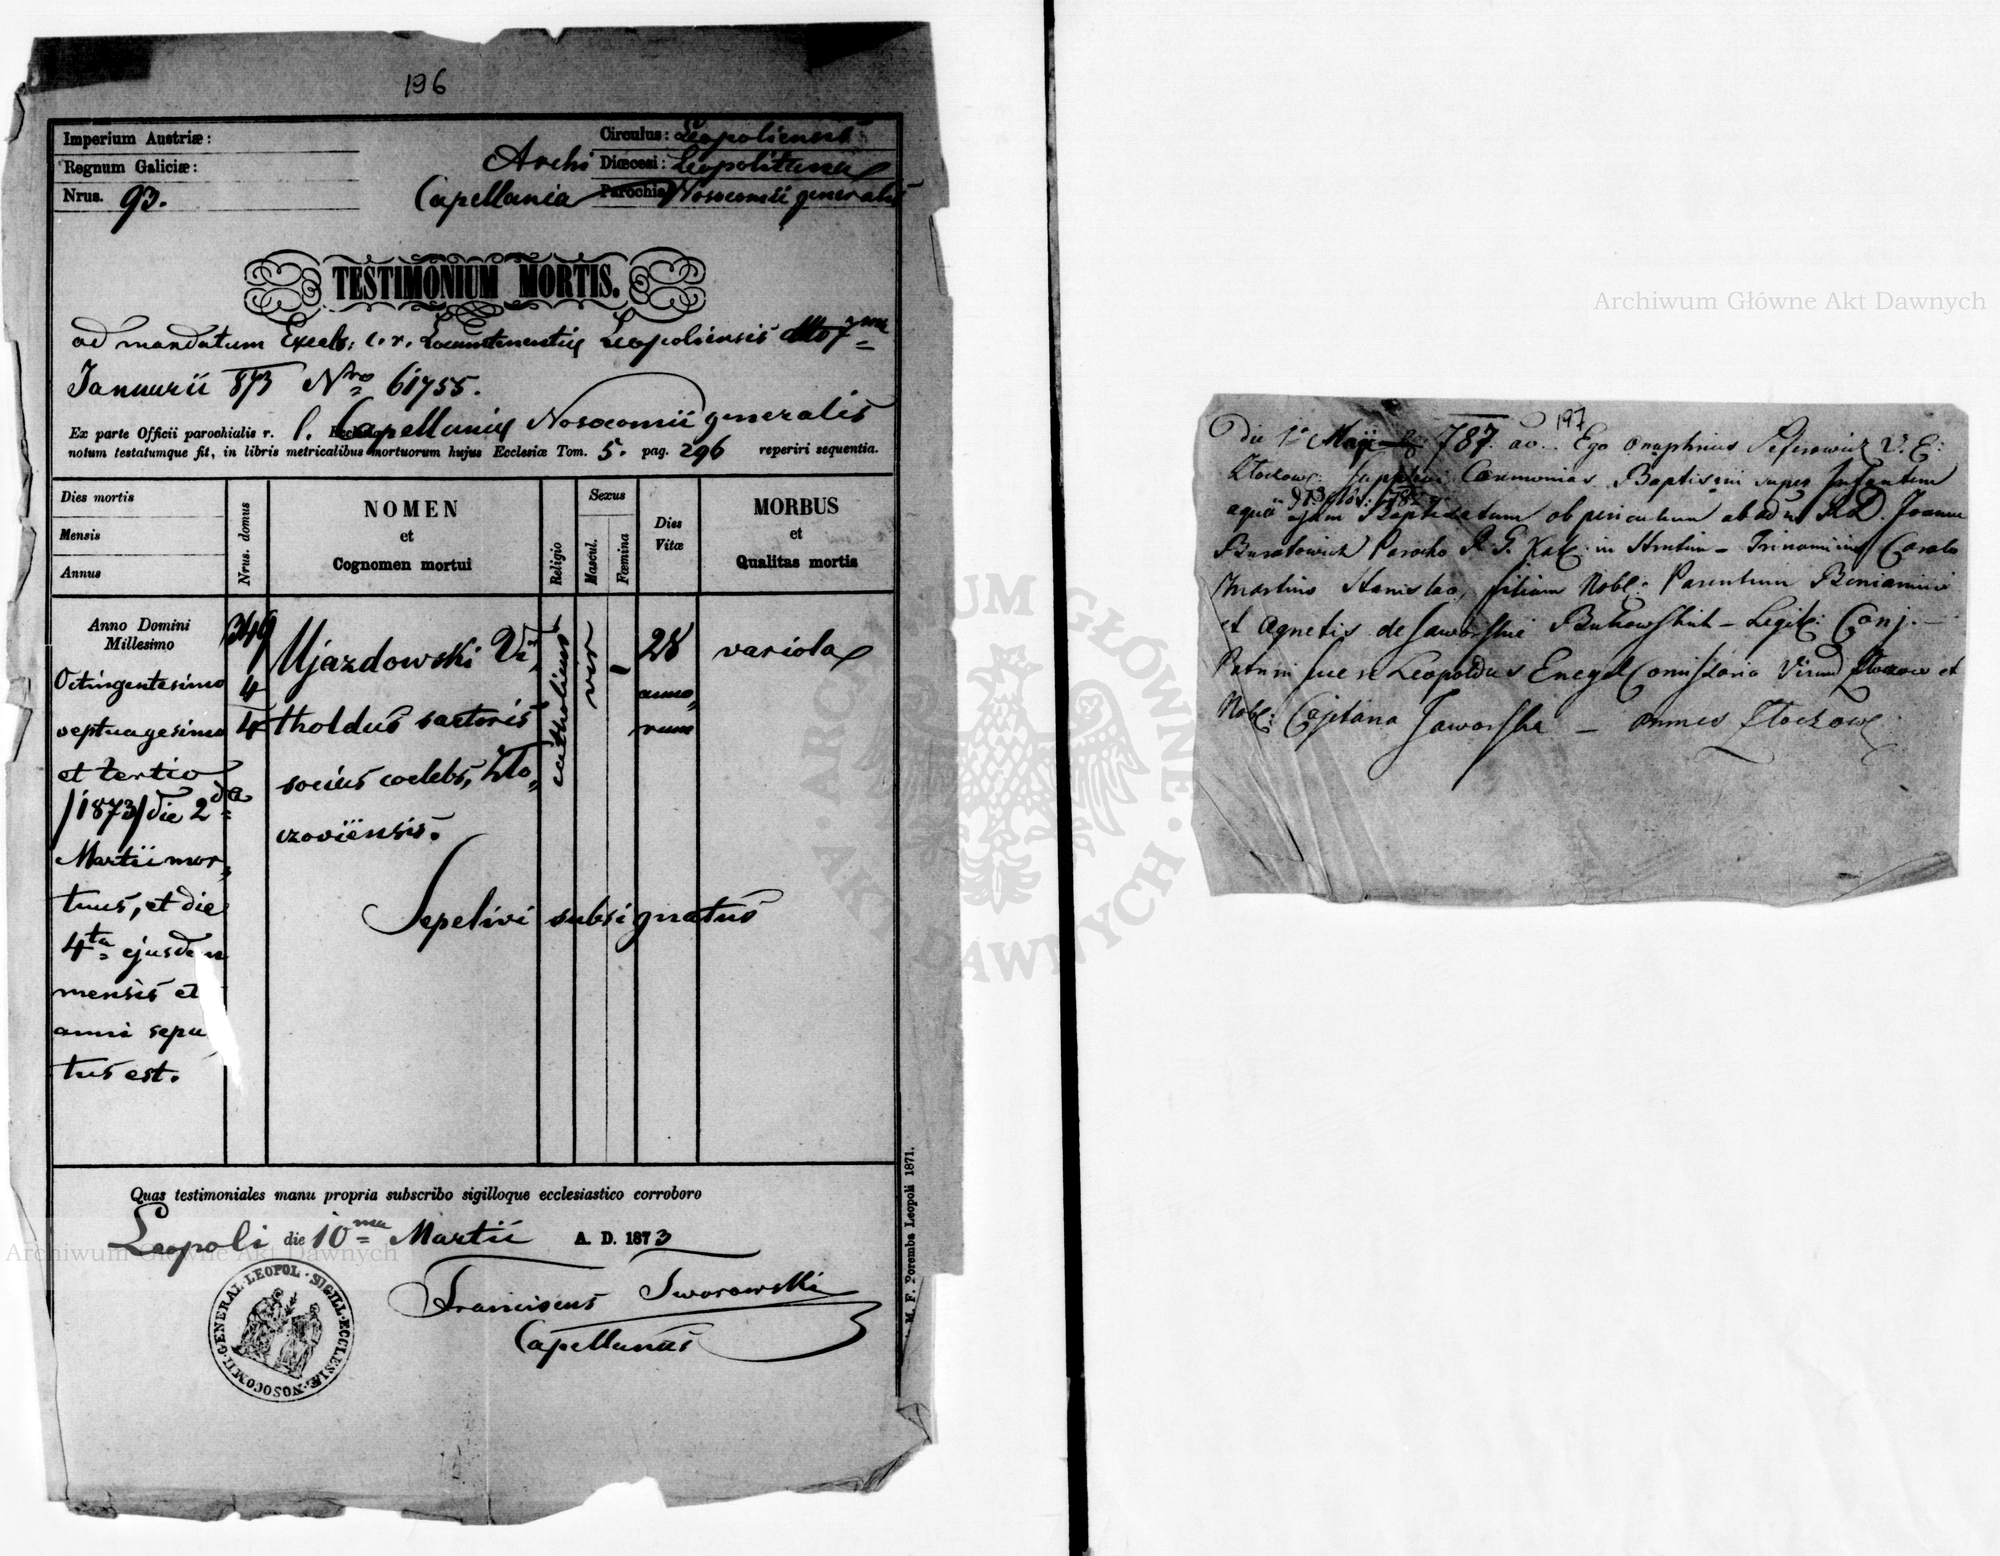 196
Imperium Austriæ:
Regnum Galiciæ:
Nrus. 93.
Circulus: Leopoliensis
Archi Diœcesi: Leopolitana
Capellania Parochia Nosocomii generalis
TESTIMONIUM MORTIS.
ad mandatum Excels: c. r. Locumtenentiæ Leopoliensis ddto 7ma
Januarii 873 Nro 61755.
Ex parte Officii parochialis r. l. Capellaniæ Nosocomii generalis
notum testatumque fit, in libris metricalibus mortuorum hujus Ecclesiæ Tom. 5. pag. 296 reperiri sequentia.
Dies mortis
Mensis
Annus
Nrus. domus
NOMEN
et
Cognomen mortui
Religio
Sexus
Mascul.
Fœmina
Dies
Vitæ
MORBUS
et
Qualitas mortis
Anno Domini
Millesimo
Octingentesimo
septuagesimo
et tertio
/1873/ die 2da
Martii mor„
tuus, et die
4ta ejusdem
mensis et
anni sepu
tus est.
349
4
4
Ujazdowski Vi„
tholdus sartoris
socius coelebs, Zlo„
czoviensis.
catholicus
vir
1
28
anno„
rum
variola
Sepelivi subsignatus
Quas testimoniales manu propria subscribo sigilloque ecclesiastico corroboro
Leopoli die 10ma Martii A. D. 1873
Franciscus Tworowski
Capellanus
SIGILL·ECCLESIÆ·NOSOCOMII·GENERAL·LEOPOL·
M. F. Poremba Leopoli 1871.
197
Die 1a Maji 787. Ego Onophrius Peferowicz V. E:
Złoczow: Supplevi Cæremonias Baptismi super Infantem
aqua jam Baptizatum ob periculum ab adm R.D. Joanne
Buratowicz Parocho R. G. Kat. in Strutin – Trinomini Carolo
Martino Stanislao, filium Nobl: Parentum Beniamini
et Agnetis de Jaworskie Bukowskich – Legit: Conj. –
Patrini fuer. Leopoldus Comissario Złoczow et
Nobl: Cajetana Jaworska – omnes Złoczow
Archiwum Główne Akt Dawnych
Archiwum Główne Akt Dawnych
ARCHIWUM GŁÓWNE · AKT DAWNYCH ·